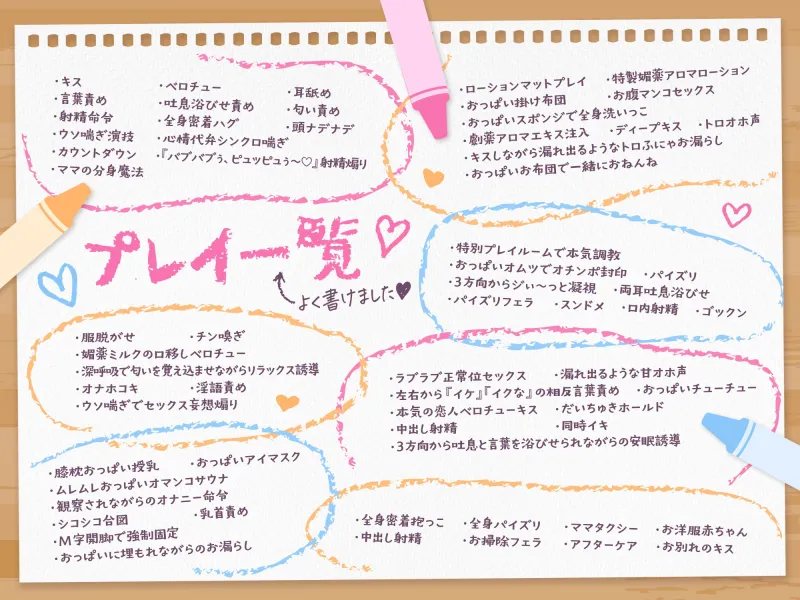 ・キス
・言葉責め
・射精命令
・ウソ喘ぎ演技
・カウントダウン
・ママの分身魔法
・ベロチュー
・吐息浴びせ責め
・全身密着ハグ
・心情代弁シンクロ喘ぎ
・『バブバブぅ、ピュッピュぅ～♡』射精煽り
・耳舐め
・匂い責め
・頭ナデナデ
・ローションマットプレイ ・特製媚薬アロマローション
・おっぱい掛け布団 ・お腹マンコセックス
・おっぱいスポンジで全身洗いっこ
・劇薬アロマエキス注入 ・ディープキス ・トロオホ声
・キスしながら漏れ出るようなトロふにゃお漏らし
・おっぱいお布団で一緒におねんね
プレイ一覧
よく書けました♥
・特別プレイルームで本気調教
・おっぱいオムツでオチンポ封印 ・パイズリ
・3方向からジぃ～っと凝視 ・両耳吐息浴びせ
・パイズリフェラ ・スンドメ ・口内射精 ・ゴックン
・服脱がせ ・チン嗅ぎ
・媚薬ミルクの口移しベロチュー
・深呼吸で匂いを覚え込ませながらリラックス誘導
・オナホコキ ・淫語責め
・ウソ喘ぎでセックス妄想煽り
・ラブラブ正常位セックス ・漏れ出るような甘オホ声
・左右から『イケ』『イクな』の相反言葉責め ・おっぱいチューチュー
・本気の恋人ベロチューキス ・だいちゅきホールド
・中出し射精 ・同時イキ
・3方向から吐息と言葉を浴びせられながらの安眠誘導
・膝枕おっぱい授乳 ・おっぱいアイマスク
・ムレムレおっぱいオマンコサウナ
・観察されながらのオナニー命令
・シコシコ台図 ・乳首責め
・M字開脚で強制固定
・おっぱいに埋もれながらのお漏らし
・全身密着抱っこ ・全身パイズリ ・ママタクシー ・お洋服赤ちゃん
・中出し射精 ・お掃除フェラ ・アフターケア ・お別れのキス